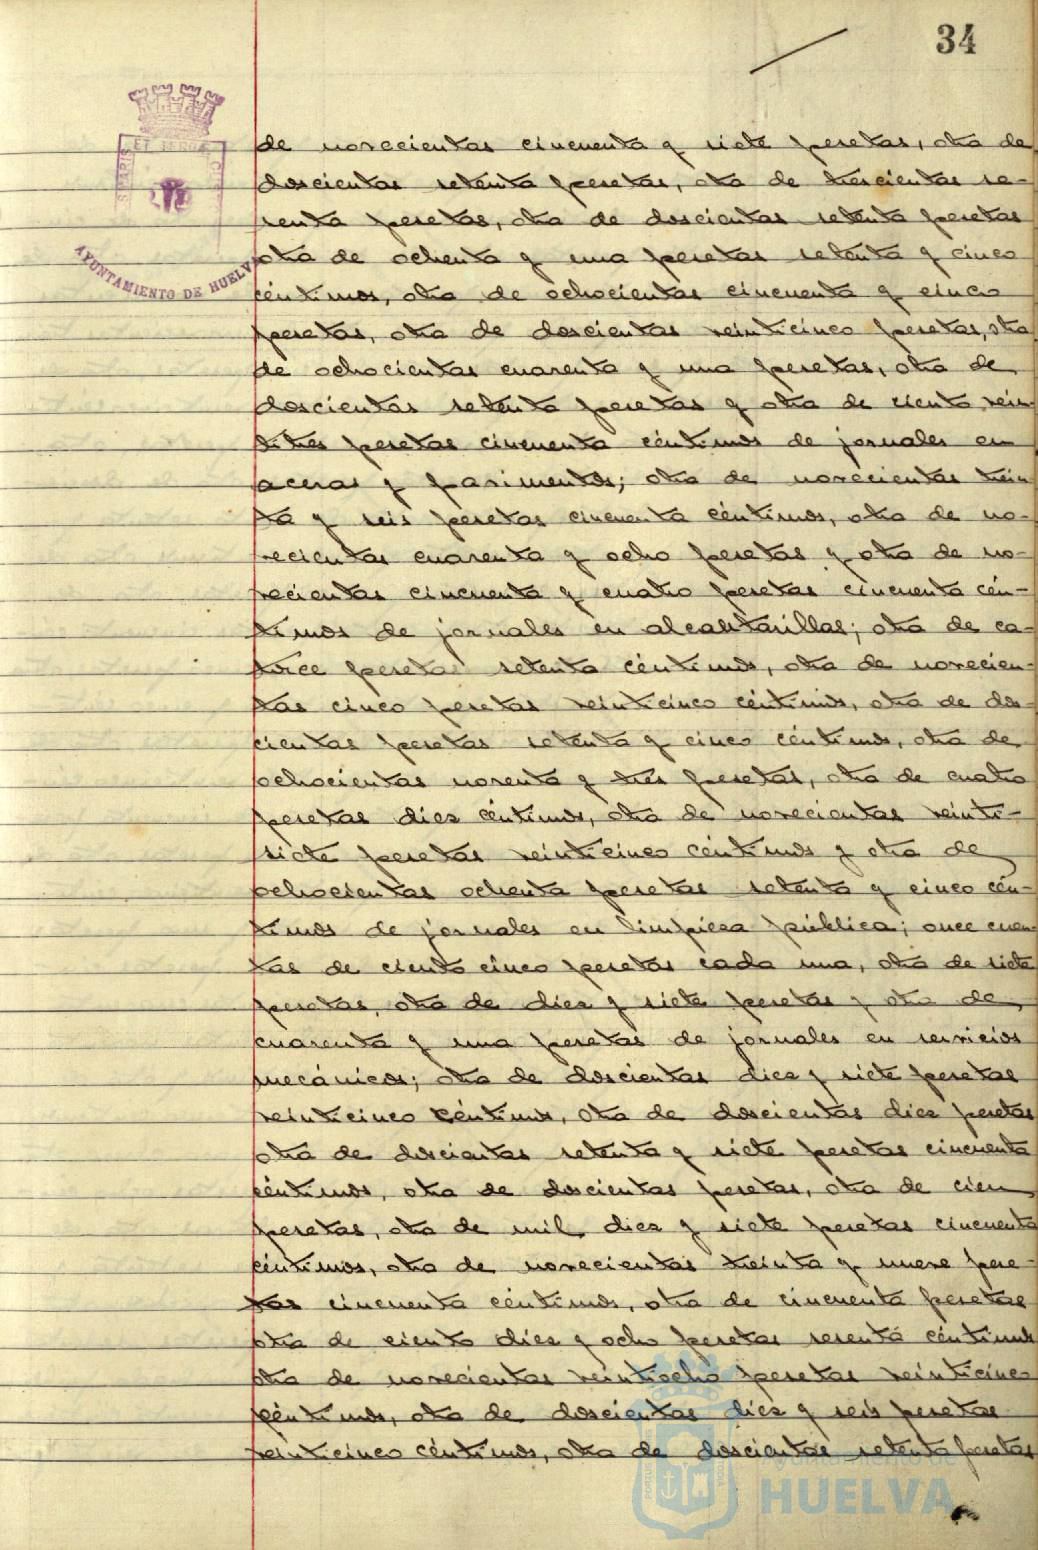 34
ET TERRÆ
AYUNTAMIENTO DE HUELVA
de novecientas cincuenta y siete pesetas, otra de
doscientas setenta pesetas, otra de trescientas se-
senta pesetas, otra de doscientas setenta pesetas
otra de ochenta y una pesetas setenta y cinco
céntimos, otra de ochocientas cincuenta y cinco
pesetas, otra de doscientas veinticinco pesetas, otra
de ochocientas cuarenta y una pesetas, otra de
doscientas setenta pesetas y otra de ciento vein-
titres pesetas cincuenta céntimos de jornales en
aceras y pavimentos; otra de novecientas trein-
ta y seis pesetas cincuenta céntimos, otra de no-
vecientas cuarenta y ocho pesetas y otra de no-
vecientas cincuenta y cuatro pesetas cincuenta cén-
timos de jornales en alcantarillas; otra de ca-
torce pesetas setenta céntimos, otra de novecien-
tas cinco pesetas veinticinco céntimos, otra de dos-
cientas pesetas setenta y cinco céntimos, otra de
ochocientas noventa y tres pesetas, otra de cuatro
pesetas diez céntimos, otra de novecientas veinti-
siete pesetas veinticinco céntimos y otra de
ochocientas ochenta pesetas setenta y cinco cén-
timos de jornales en limpieza pública; once cuen-
tas de ciento cinco pesetas cada una, otra de siete
pesetas, otra de diez y siete pesetas y otra de
cuarenta y una pesetas de jornales en servicios
mecánicos; otra de doscientas diez y siete pesetas
veinticinco céntimos, otra de doscientas diez pesetas
otra de doscientas setenta y siete pesetas cincuenta
céntimos, otra de doscientas pesetas, otra de cien
pesetas, otra de mil diez y siete pesetas cincuenta
céntimos, otra de novecientas treinta y nueve pese-
tas cincuenta céntimos, otra de cincuenta pesetas
otra de ciento diez y ocho pesetas sesenta céntimos
otra de novecientas veintiocho pesetas veinticinco
céntimos, otra de doscientas diez y seis pesetas
veinticinco céntimos, otra de doscientas setenta pesetas
Ayuntamiento de
HUELVA